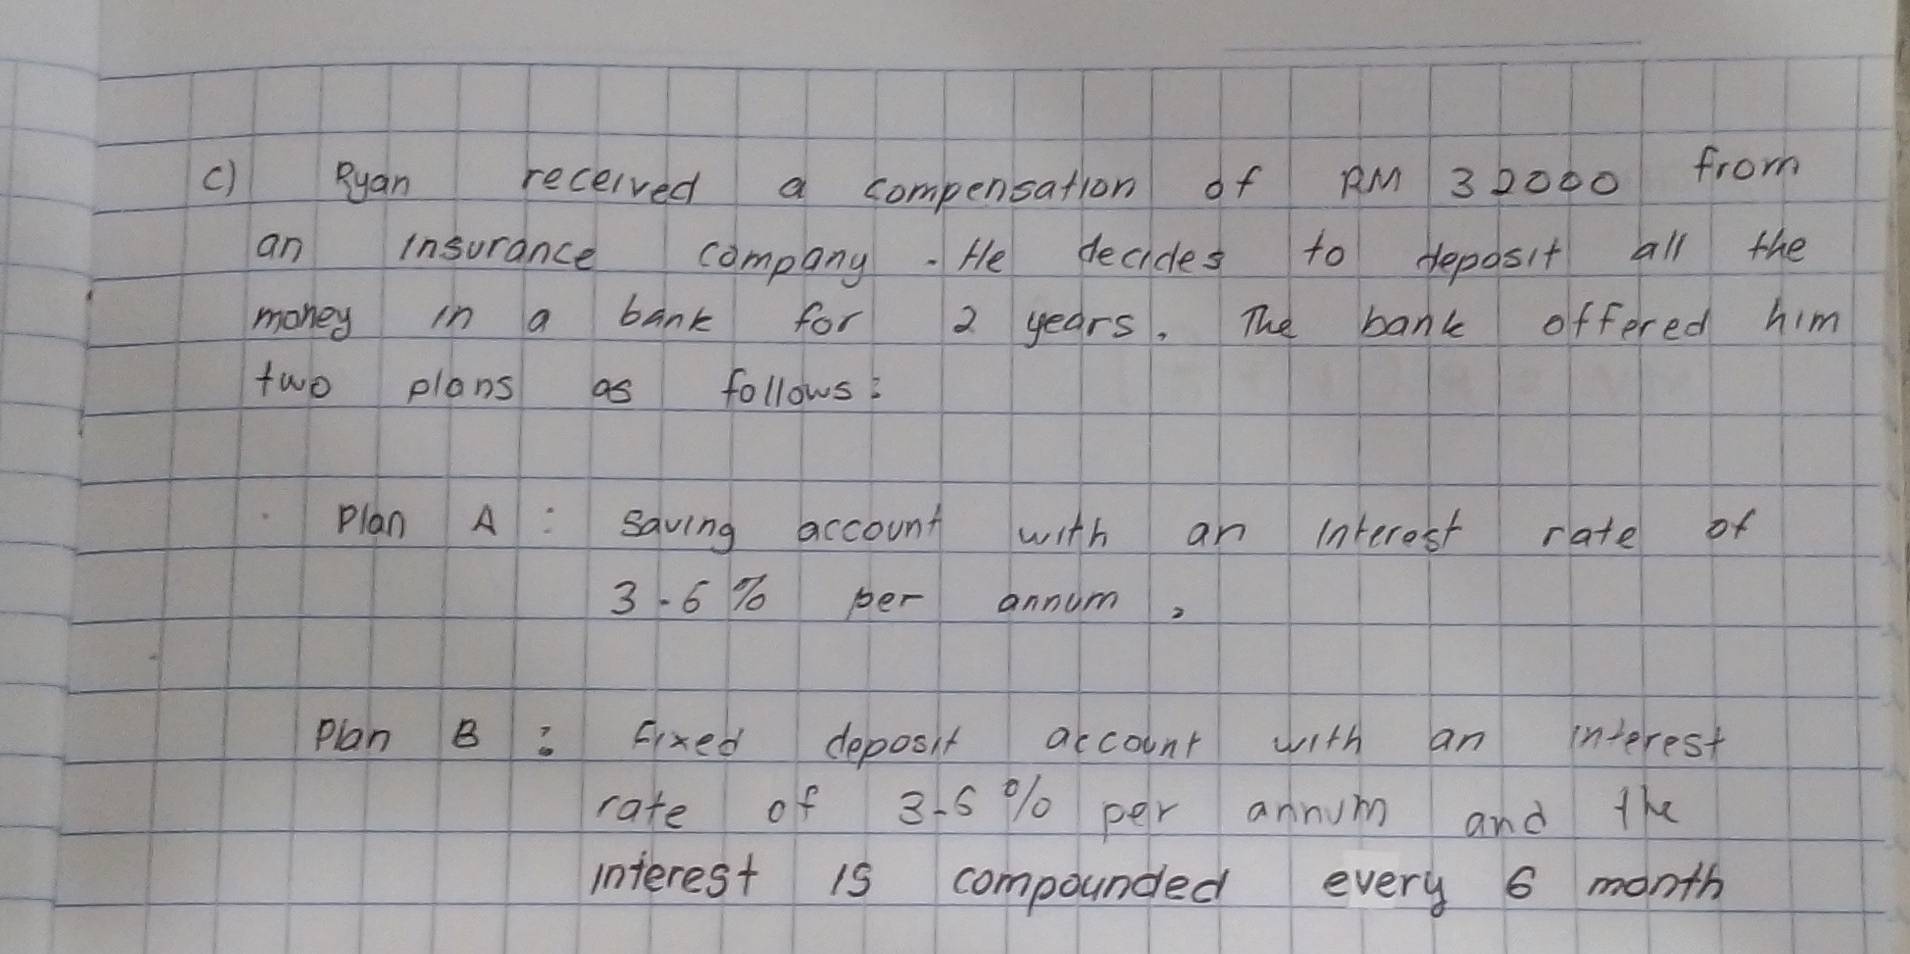 c) Ryan received a compensation of RM 32000 from
an insurance company. He decides to deposit all the
money in a bank for 2 years. The bank offered him
two plans as follows:
Plan A : saving account with an interest rate of
3.6% per annum.
Plan B : Fixed deposit account with an interest
rate of 3.6% per annum and the
interest is compounded every 6 month